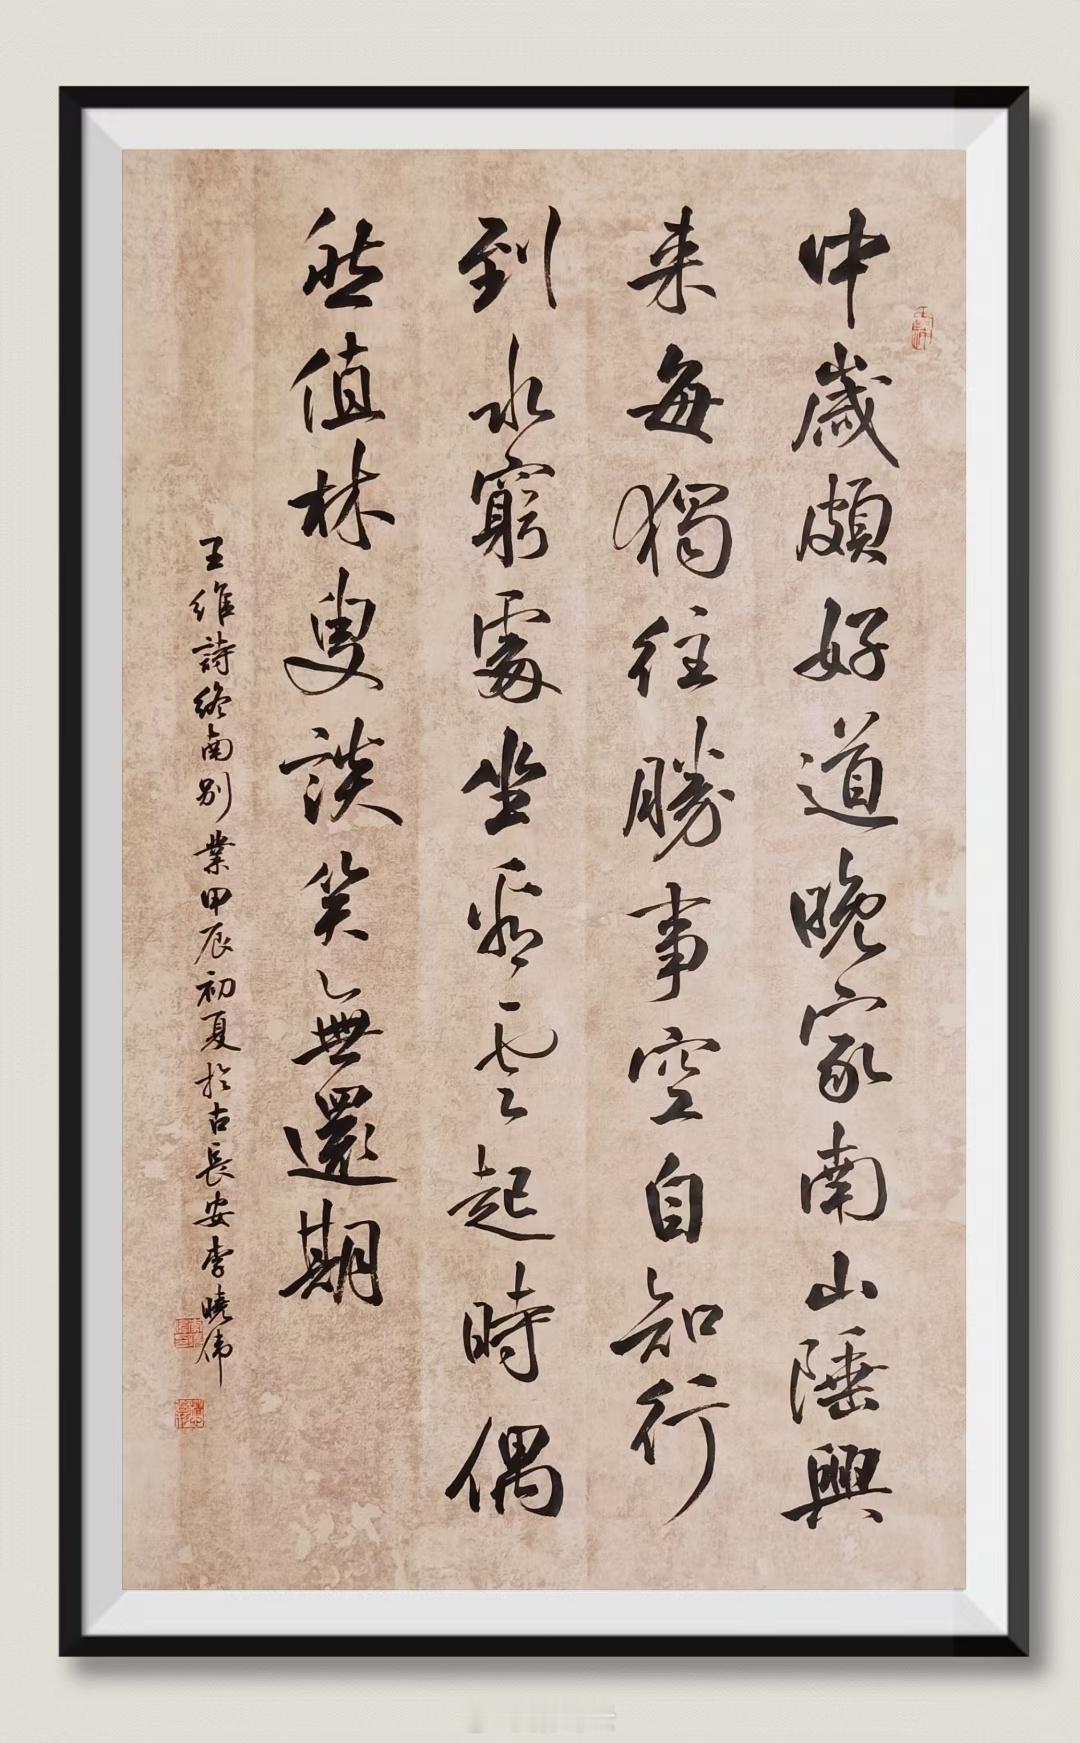 中歲頗好道晚家南山陲興
来每獨往勝事空自知行
到水窮處坐看雲起時偶
然值林叟談笑無還期
王維詩終南別業甲辰初夏於古長安李曉伟